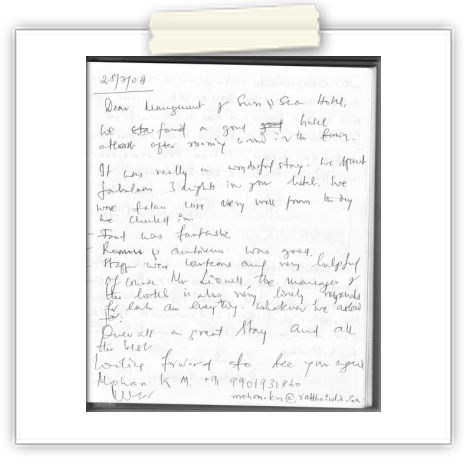 28/7/08
Dear Management of Sun & Sea Hotel,
We found a good hotel
after roaming around in the
It was really a wonderful stay. We spent
fabulous 3 nights in your hotel. We
were taken care very well from the day
we checked in.
Food was fantastic
Rooms & ambience was good.
Staff were courteous and very helpful
Of course Mr Lionell, the manager of
the hotel is also very lively responds
for each an everything. Whatever we asked
for.
Over all a great stay and all
the best
forward to see you again
Mohan K M. +91 9901931860